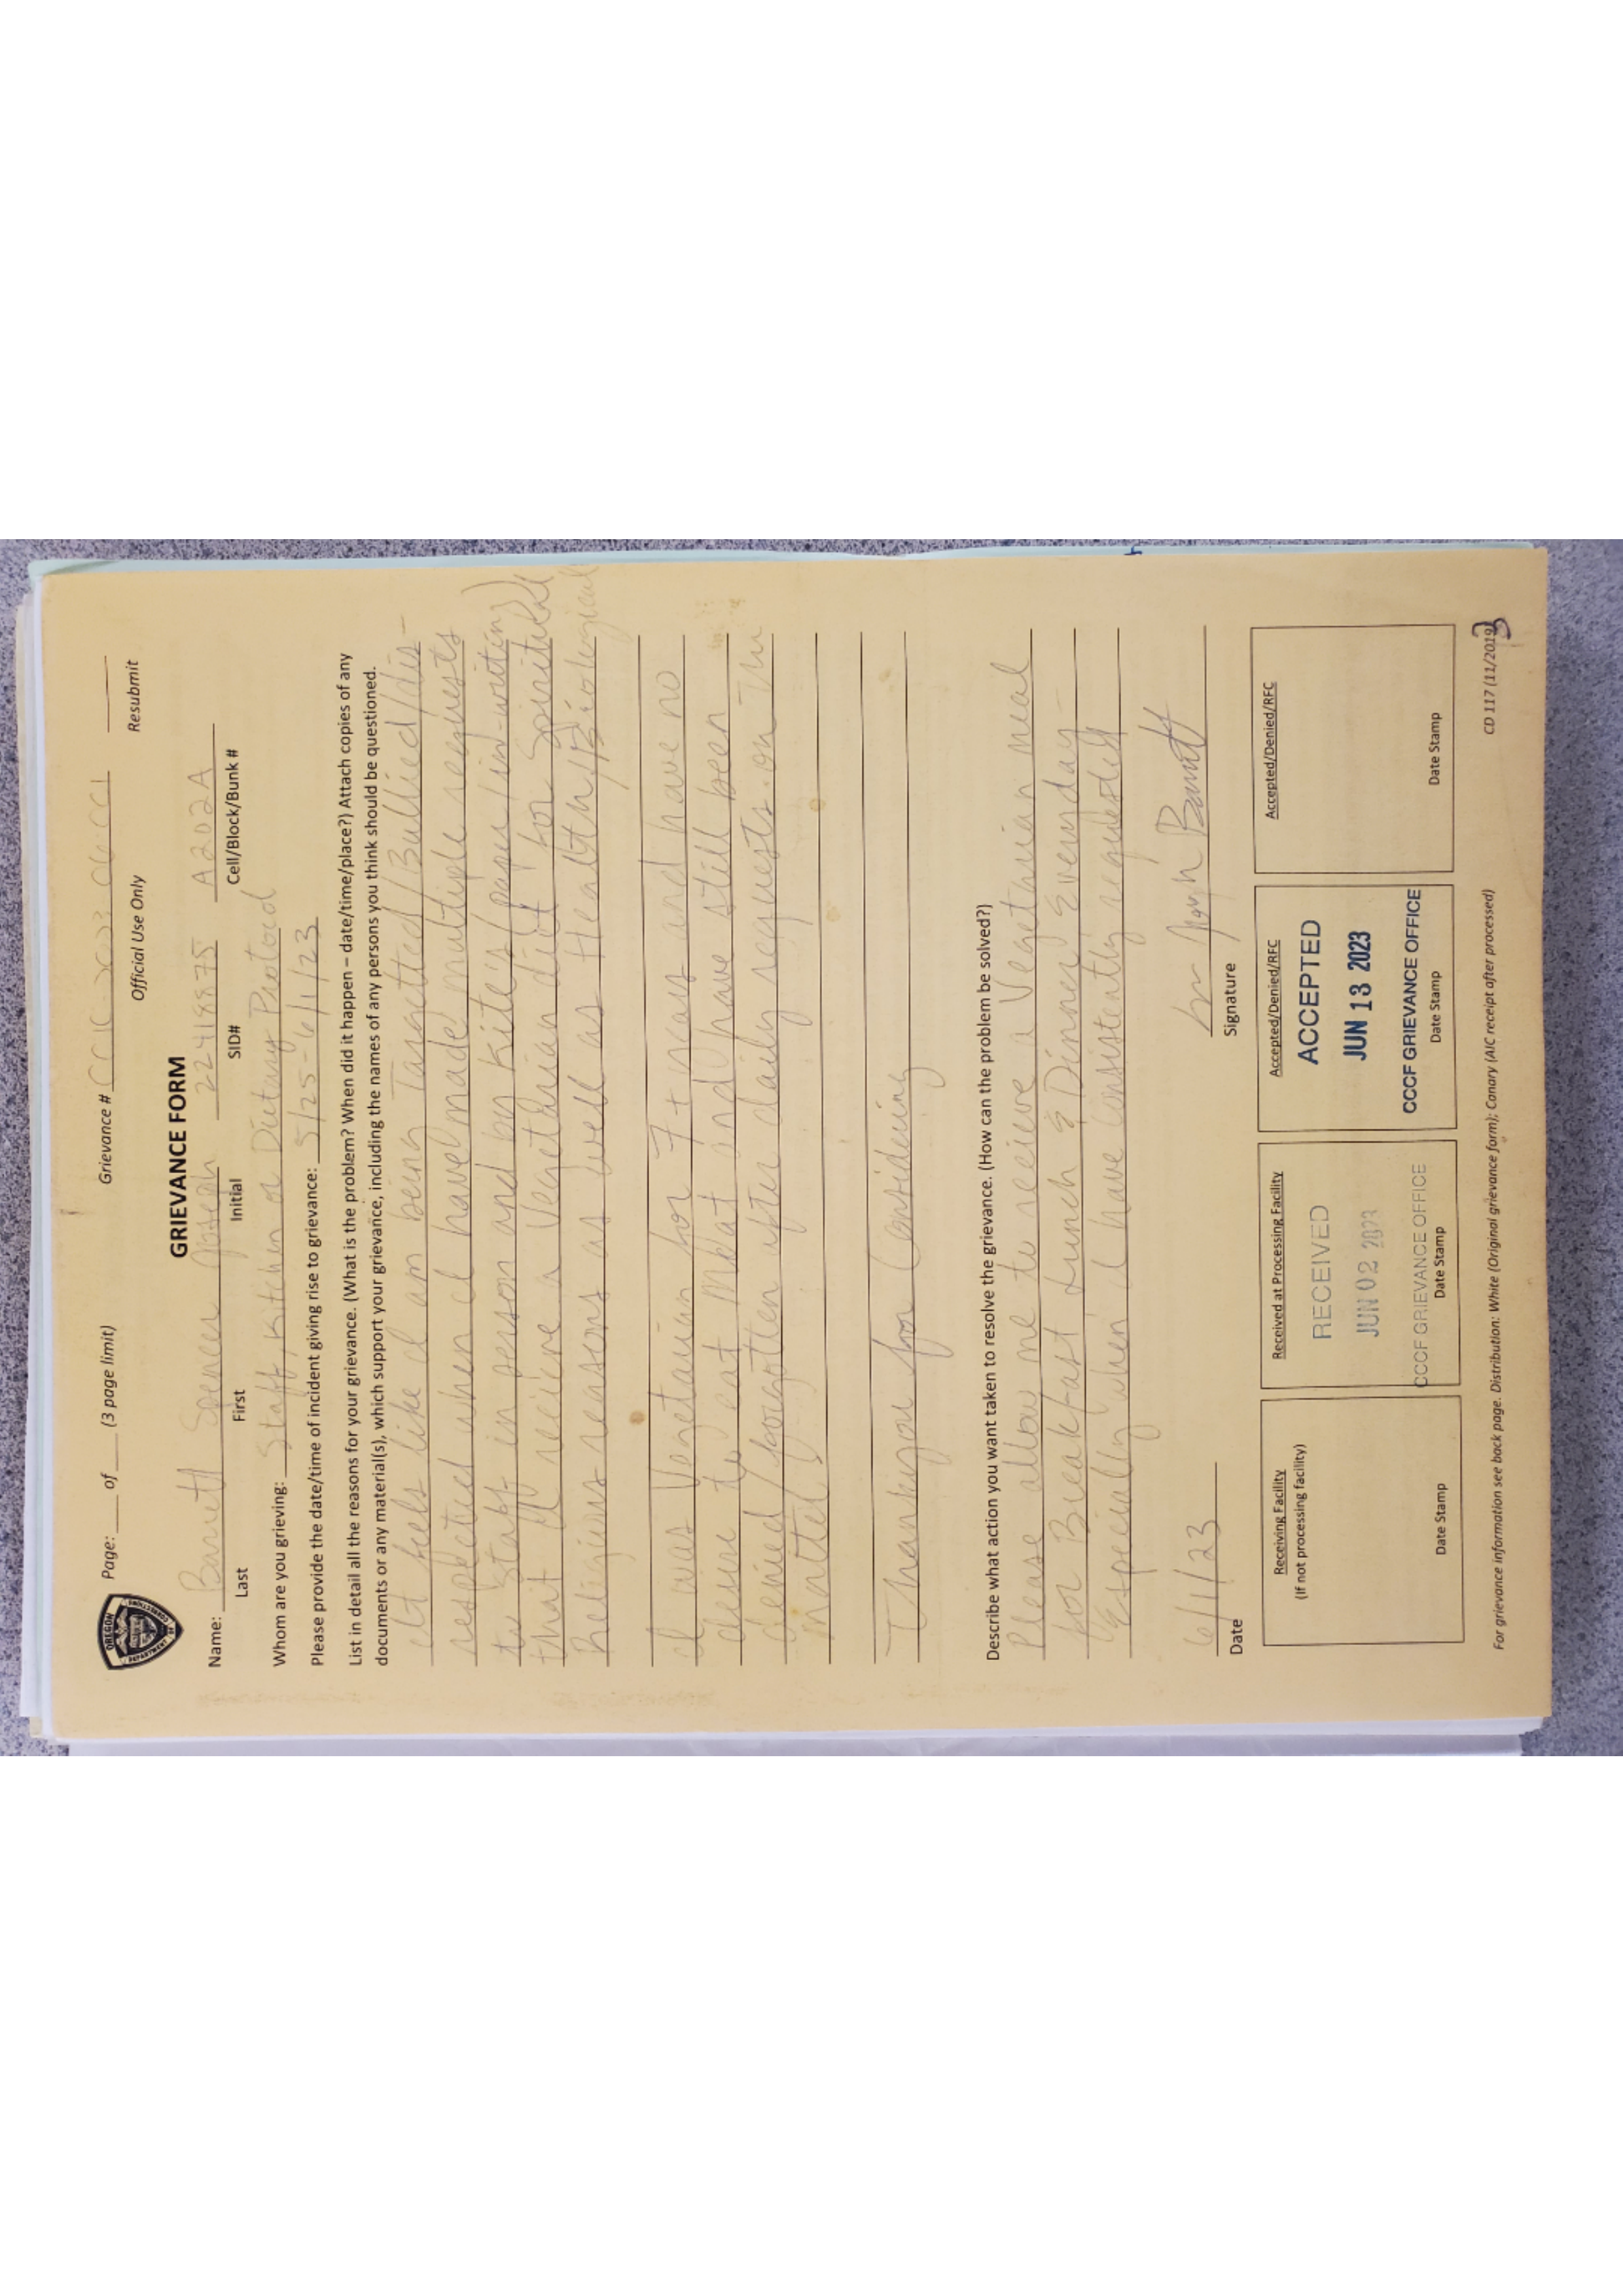 OREGON
DEPARTMENT OF CORRECTIONS
Page: ____ of ____ (3 page limit) Grievance #
Official Use Only Resubmit
GRIEVANCE FORM
Name: Barnett Spencer Joseph A202A
Last First Initial SID# Cell/Block/Bunk #
Whom are you grieving: Staff, Kitchen or Dietary
Please provide the date/time of incident giving rise to grievance: 5/25-6/1/23
List in detail all the reasons for your grievance. (What is the problem? When did it happen – date/time/place?) Attach copies of any
documents or any material(s), which support your grievance, including the names of any persons you think should be questioned.
It feels like I am being targetted/Bullied/dis-
respected when I have made multiple requests
to staff in person and by Kite's (paper/in-writing)
that I recieve a Vegetarian diet for Spiritual
Religious reasons as well as Health/Biological
I was Vegetarian for 7+ years and have no
desire to eat Meat and have still been
denied/forgotten after daily requests on the
matter
Thankyou for Considering
Describe what action you want taken to resolve the grievance. (How can the problem be solved?)
Please allow me to recieve a Vegetarian meal
for Breakfast Lunch & Dinner Everyday -
Especially when I have consistently requested
6/1/23 Barnett
Date Signature
Receiving Facility
(If not processing facility)
Date Stamp
Received at Processing Facility
RECEIVED
JUN 02 2023
CCCF GRIEVANCE OFFICE
Date Stamp
Accepted/Denied/RFC
ACCEPTED
JUN 13 2023
CCCF GRIEVANCE OFFICE
Date Stamp
Accepted/Denied/RFC
Date Stamp
For grievance information see back page. Distribution: White (Original grievance form); Canary (AIC receipt after processed) CD 117 (11/2019)
3